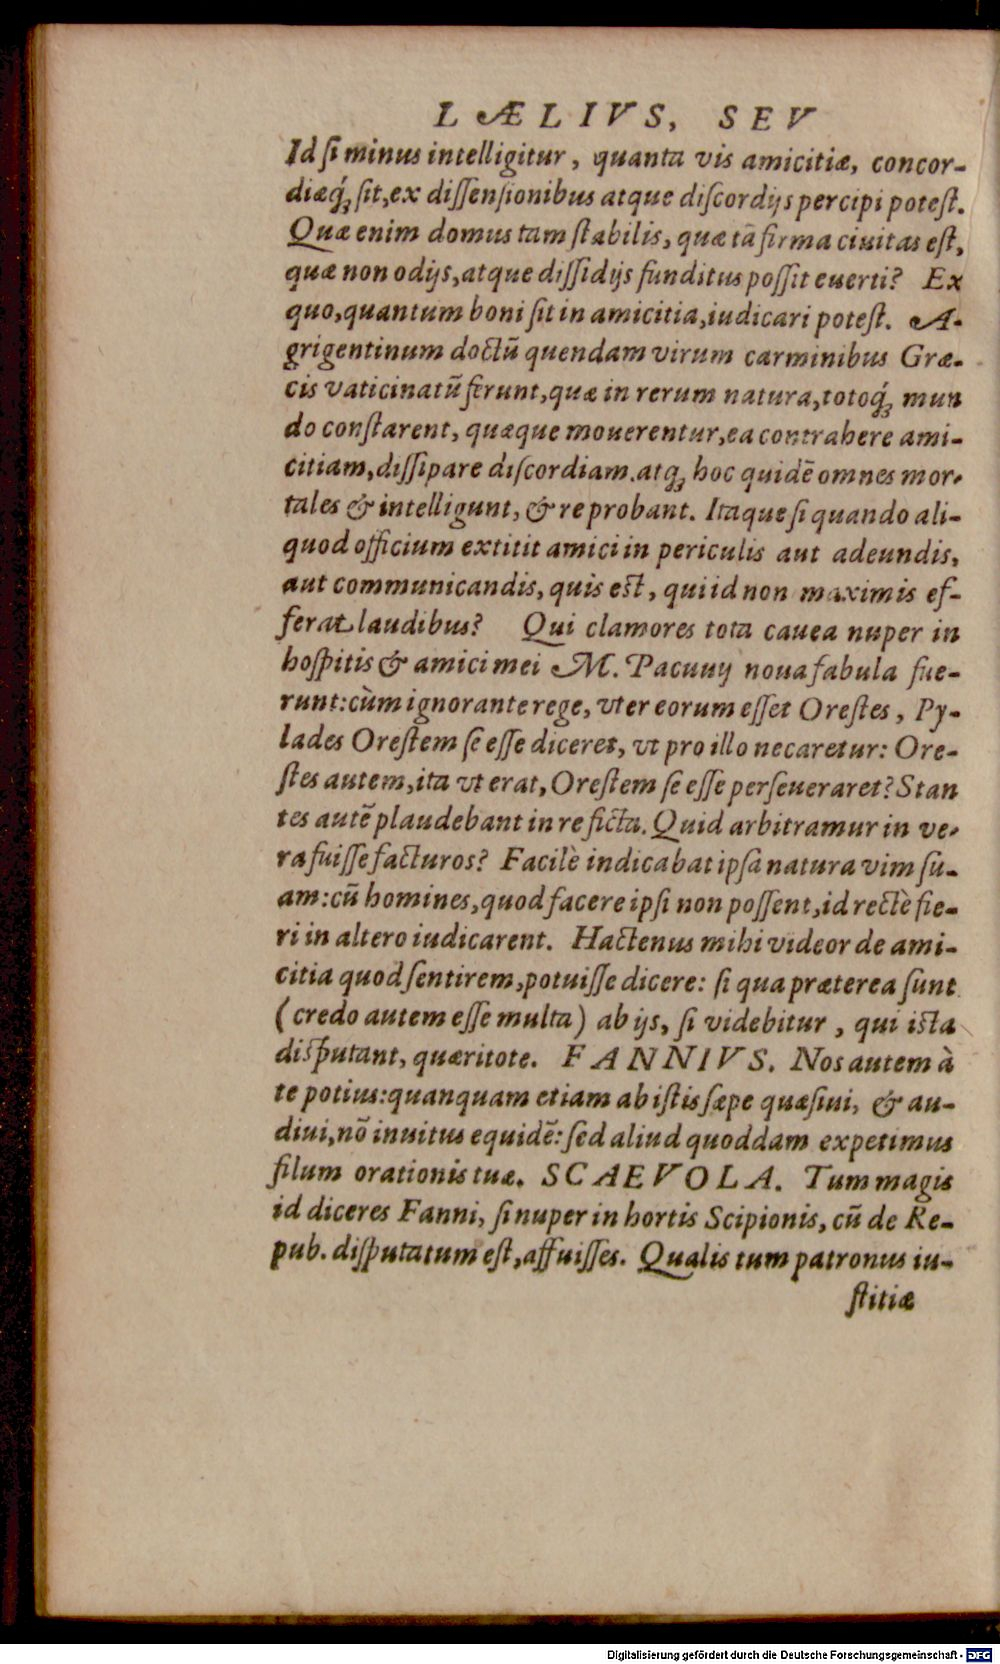 LÆLIVS, SEV
Id ſi minus intelligitur, quanta vis amicitiæ, concor-
diæq́; ſit, ex diſſenſionibus atque diſcordijs percipi poteſt.
Quæ enim domus tam ſtabilis, quæ tā firma ciuitas eſt,
quæ non odijs, atque diſſidijs funditus poſſit euerti? Ex
quo, quantum boni ſit in amicitia, iudicari poteſt. A-
grigentinum doctū quendam virum carminibus Græ-
cis vaticinatū ferunt, quæ in rerum natura, totoq́; mun
do conſtarent, quæque mouerentur, ea contrahere ami-
citiam, diſſipare diſcordiam. atq; hoc quidē omnes mor-
tales & intelligunt, & re probant. Itaque ſi quando ali-
quod officium extitit amici in periculis aut adeundis,
aut communicandis, quis eſt, qui id non maximis ef-
ferat laudibus? Qui clamores tota cauea nuper in
hoſpitis & amici mei M. Pacuuij noua fabula fue-
runt: cùm ignorante rege, vter eorum eſſet Oreſtes, Py-
lades Oreſtem ſe eſſe diceret, vt pro illo necaretur: Ore-
ſtes autem, ita vt erat, Oreſtem ſe eſſe perſeueraret? Stan
tes autē plaudebant in re ficta. Quid arbitramur in ve-
ra fuiſſe facturos? Facilè indicabat ipſa natura vim ſu-
am: cū homines, quod facere ipſi non poſſent, id rectè fie-
ri in altero iudicarent. Hactenus mihi videor de ami-
citia quod ſentirem, potuiſſe dicere: ſi qua præterea ſunt
(credo autem eſſe multa) ab ijs, ſi videbitur, qui iſta
diſputant, quæritote. FANNIVS. Nos autem à
te potius: quanquam etiam ab iſtis ſæpe quæſiui, & au-
diui, nō inuitus equidē: ſed aliud quoddam expetimus
filum orationis tuæ. SCAEVOLA. Tum magis
id diceres Fanni, ſi nuper in hortis Scipionis, cū de Re-
pub. diſputatum eſt, affuiſſes. Qualis tum patronus iu-
ſtitiæ
Digitalisierung gefördert durch die Deutsche Forschungsgemeinschaft - DFG